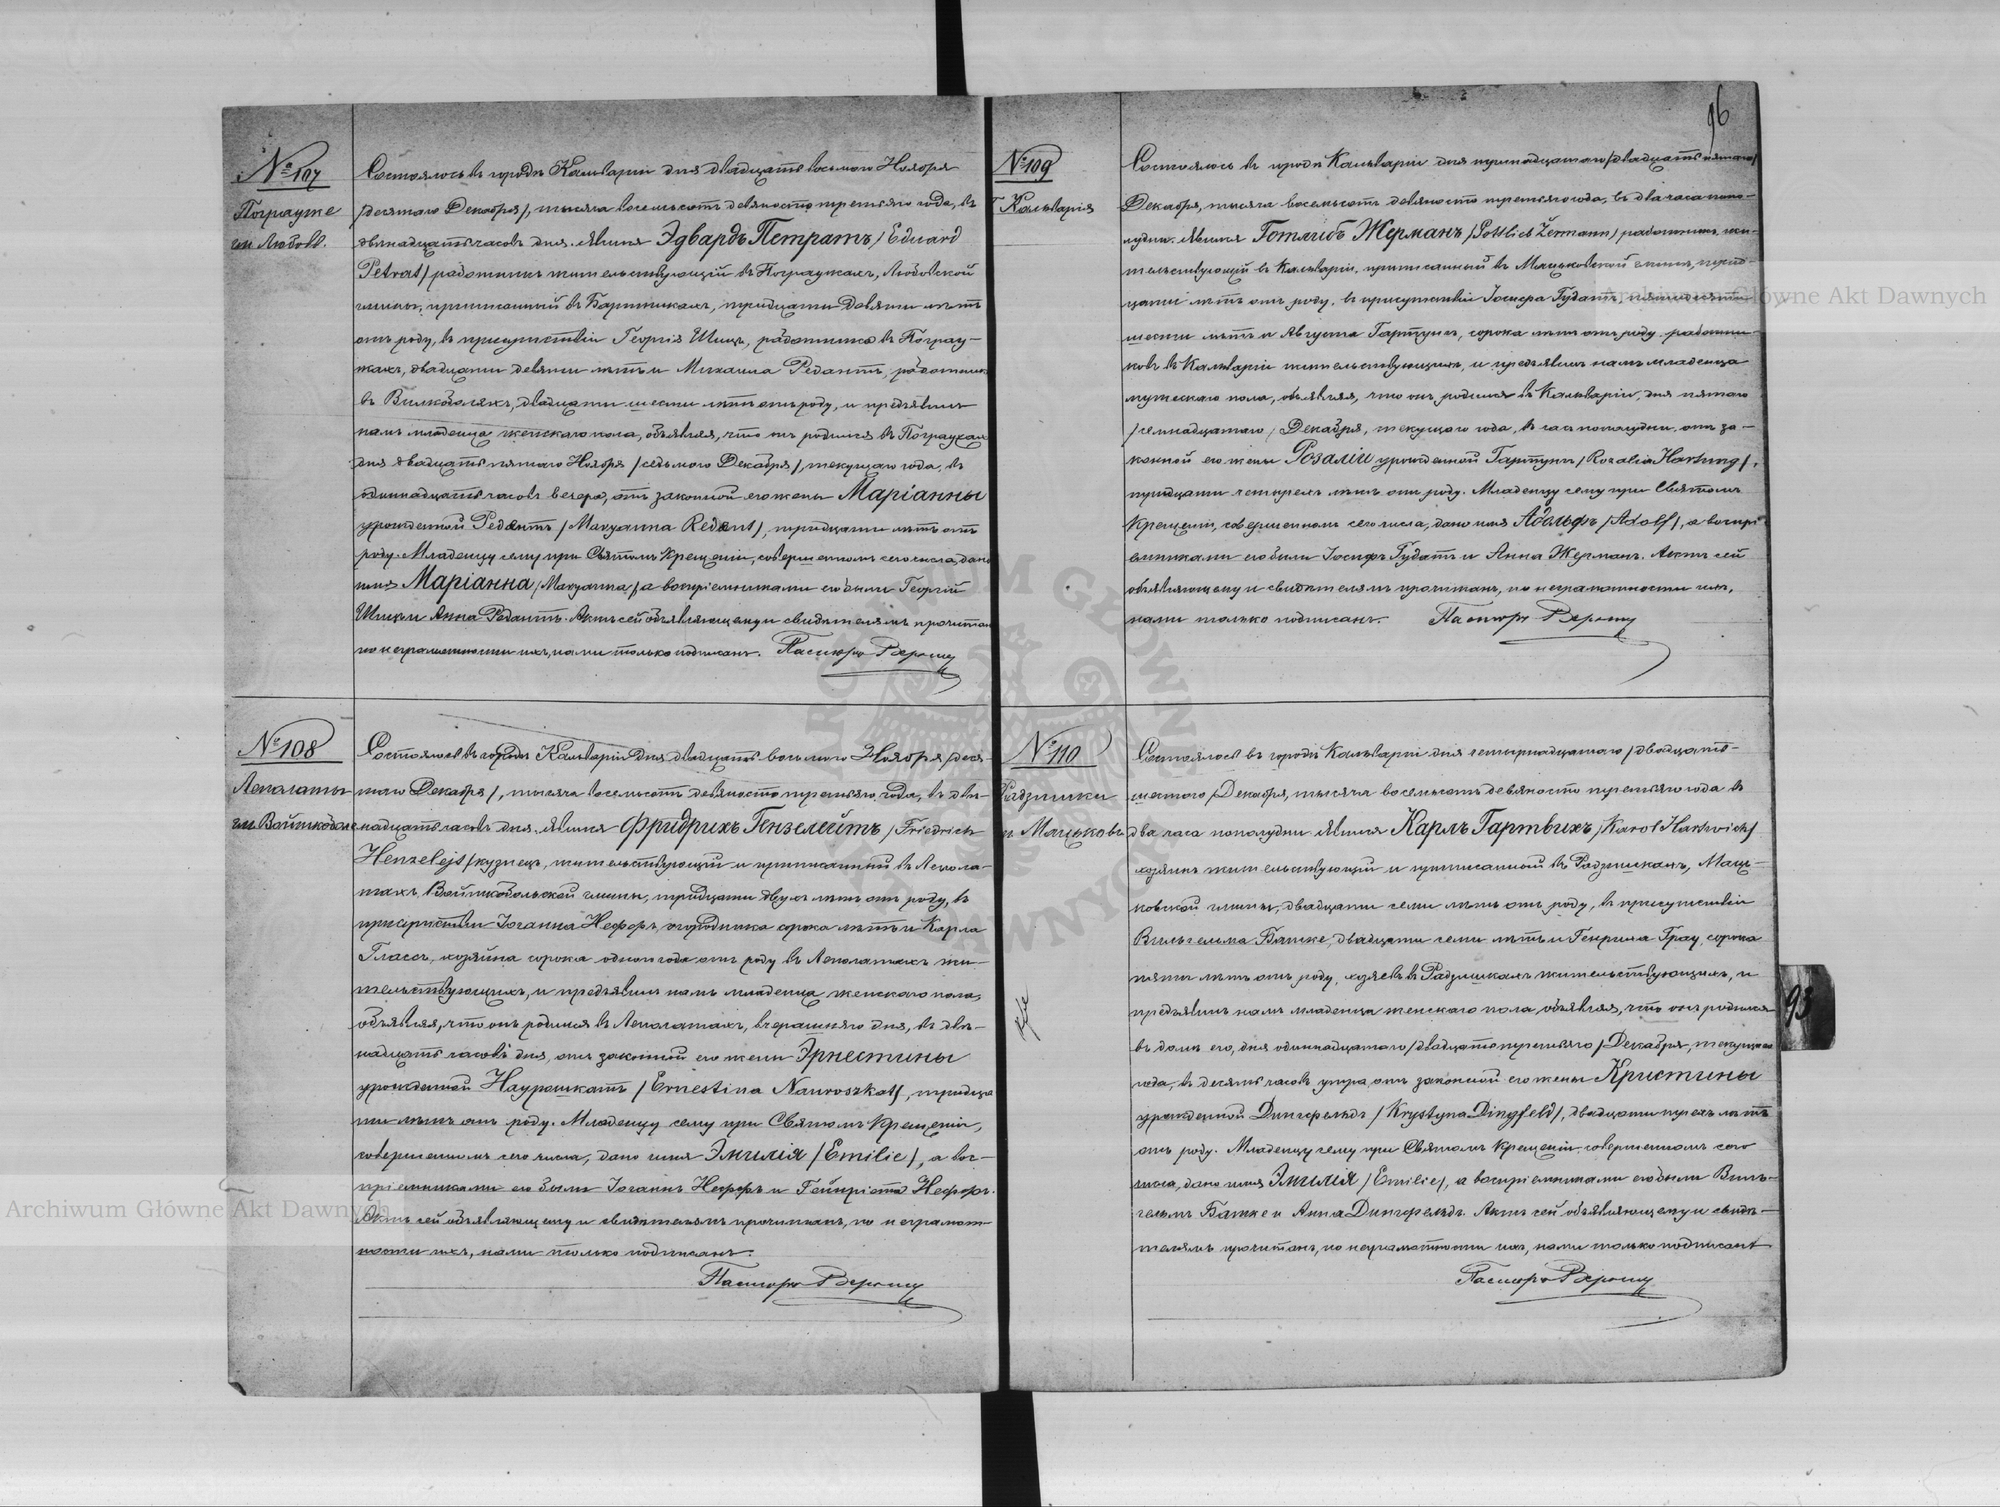 № 107
Пограуже
гм. Любов.
Состоялось въ городѣ Кальваріи дня двадцать восьмого Ноября
/десятаго Декабря/, тысяча восемьсотъ девяносто третьяго года, въ
двѣнадцать часовъ дня. Явился Эдвардъ Петратъ /Eduard
Petrat/ работникъ жительствующій въ Пограужахъ, Любовской
гмины, приписанный въ Бартникахъ, тридцати девяти лѣтъ
отъ роду, въ присутствіи Георгія Шикъ, работника въ Пограу-
жахъ, двадцати девяти лѣтъ и Михаила Редантъ, работника
въ Вилкобаляхъ, двадцати шести лѣтъ отъ роду, и предъявилъ
намъ младенца женскаго пола, объявляя, что онъ родился въ Пограужахъ
дня двадцать пятаго Ноября /седьмого Декабря/, текущаго года, въ
одиннадцать часовъ вечера, отъ законной его жены Маріанны
урожденной Редантъ /Maryanna Redant/, тридцати лѣтъ отъ
роду. Младенцу сему при Святомъ Крещеніи, совершенномъ сего числа, дано
имя Маріанна /Maryanna/, а воспріемниками его были Георгій
Шикъ и Анна Редантъ. Актъ сей объявляющему и свидѣтелямъ прочитанъ
по неграмотности ихъ, нами только подписанъ. Пасторъ
№ 108
Лепалаты
гм. Войткобол
Состоялось въ городѣ Кальваріи дня двадцать восьмого Ноября /деся-
таго Декабря/, тысяча восемьсотъ девяносто третьяго года, въ двѣ-
надцать часовъ дня. Явился Фридрихъ Гензелейтъ /Friedrich
Henzelejt/ кузнецъ, жительствующій и приписанный въ Лепала-
тахъ, Войткобольской гмины, тридцати двухъ лѣтъ отъ роду, въ
присутствіи Іоганна Нефоръ, огородника сорока лѣтъ и Карла
Глассъ, хозяина сорока одного года отъ роду въ Лепалатахъ жи-
тельствующихъ, и предъявилъ намъ младенца женскаго пола,
объявляя, что онъ родился въ Лепалатахъ, вчерашняго дня, въ двѣ-
надцать часовъ дня, отъ законной его жены Эрнестины
урожденной Наурошкатъ /Ernestina Nawroszkat/, тридца-
ти лѣтъ отъ роду. Младенцу сему при Святомъ Крещеніи,
совершенномъ сего числа, дано имя Эмилія /Emilie/, а вос-
пріемниками его были Іоганнъ Нефоръ и Генріэта Нефоръ.
Актъ сей объявляющему и свидѣтелямъ прочитанъ, по неграмот-
ности ихъ, нами только подписанъ.
Пасторъ
96
№ 109
Г. Кальварія
Состоялось въ городѣ Кальваріи дня тринадцатаго /двадцать пятаго/
Декабря, тысяча восемьсотъ девяносто третьяго года, въ два часа попо-
лудни. Явился Готлибъ Жерманъ /Gottlieb Żermann/ работникъ, жи-
тельствующій въ Кальваріи, приписанный въ Мацьковской гминѣ, трид-
цати лѣтъ отъ роду, въ присутствіи Іосифа Гудатъ, пятидесяти
шести лѣтъ и Августа Гартунгъ, сорока лѣтъ отъ роду, работни-
ковъ въ Кальваріи жительствующихъ, и предъявилъ намъ младенца
мужескаго пола, объявляя, что онъ родился въ Кальваріи, дня пятаго
/семнадцатаго/ Декабря, текущаго года, въ часъ пополудни, отъ за-
конной его жены Розаліи урожденной Гартунгъ /Rozalia Hartung/,
тридцати четырехъ лѣтъ отъ роду. Младенцу сему при Святомъ
Крещеніи, совершенномъ сего числа, дано имя Адольфъ /Adolf/, а воспрі-
емниками его были Іосифъ Гудатъ и Анна Жерманъ. Актъ сей
объявляющему и свидѣтелямъ прочитанъ, по неграмотности ихъ,
нами только подписанъ. Пасторъ
№ 110
Радзишки
гм. Мацьково
Состоялось въ городѣ Кальваріи дня четырнадцатаго /двадцать
шестаго/ Декабря, тысяча восемьсотъ девяносто третьяго года въ
два часа пополудни. Явился Карлъ Гартвихъ /Karol Hartwich/
хозяинъ жительствующій и приписанный въ Радзишкахъ, Маць-
ковской гмины, двадцати семи лѣтъ отъ роду, въ присутствіи
Вильгельма Батке, двадцати семи лѣтъ и Генриха Грау, сорока
пяти лѣтъ отъ роду, хозяевъ въ Радзишкахъ жительствующихъ, и
предъявилъ намъ младенца женскаго пола, объявляя, что онъ родился
въ домѣ его, дня одиннадцатаго /двадцать третьяго/ Декабря, текущаго
года, въ десять часовъ утра, отъ законной его жены Кристины
урожденной Дингфельдъ /Krystyna Dingfeld/, двадцати трехъ лѣтъ
отъ роду. Младенцу сему при Святомъ Крещеніи, совершенномъ сего
числа, дано имя Эмилія /Emilie/, а воспріемниками его были Виль-
гельмъ Батке и Анна Дингфельдъ. Актъ сей объявляющему и свидѣ-
телямъ прочитанъ, по неграмотности ихъ, нами только подписанъ
Пасторъ
93
Archiwum Główne Akt Dawnych
Archiwum Główne Akt Dawnych
ARCHIWUM GŁÓWNE AKT DAWNYCH